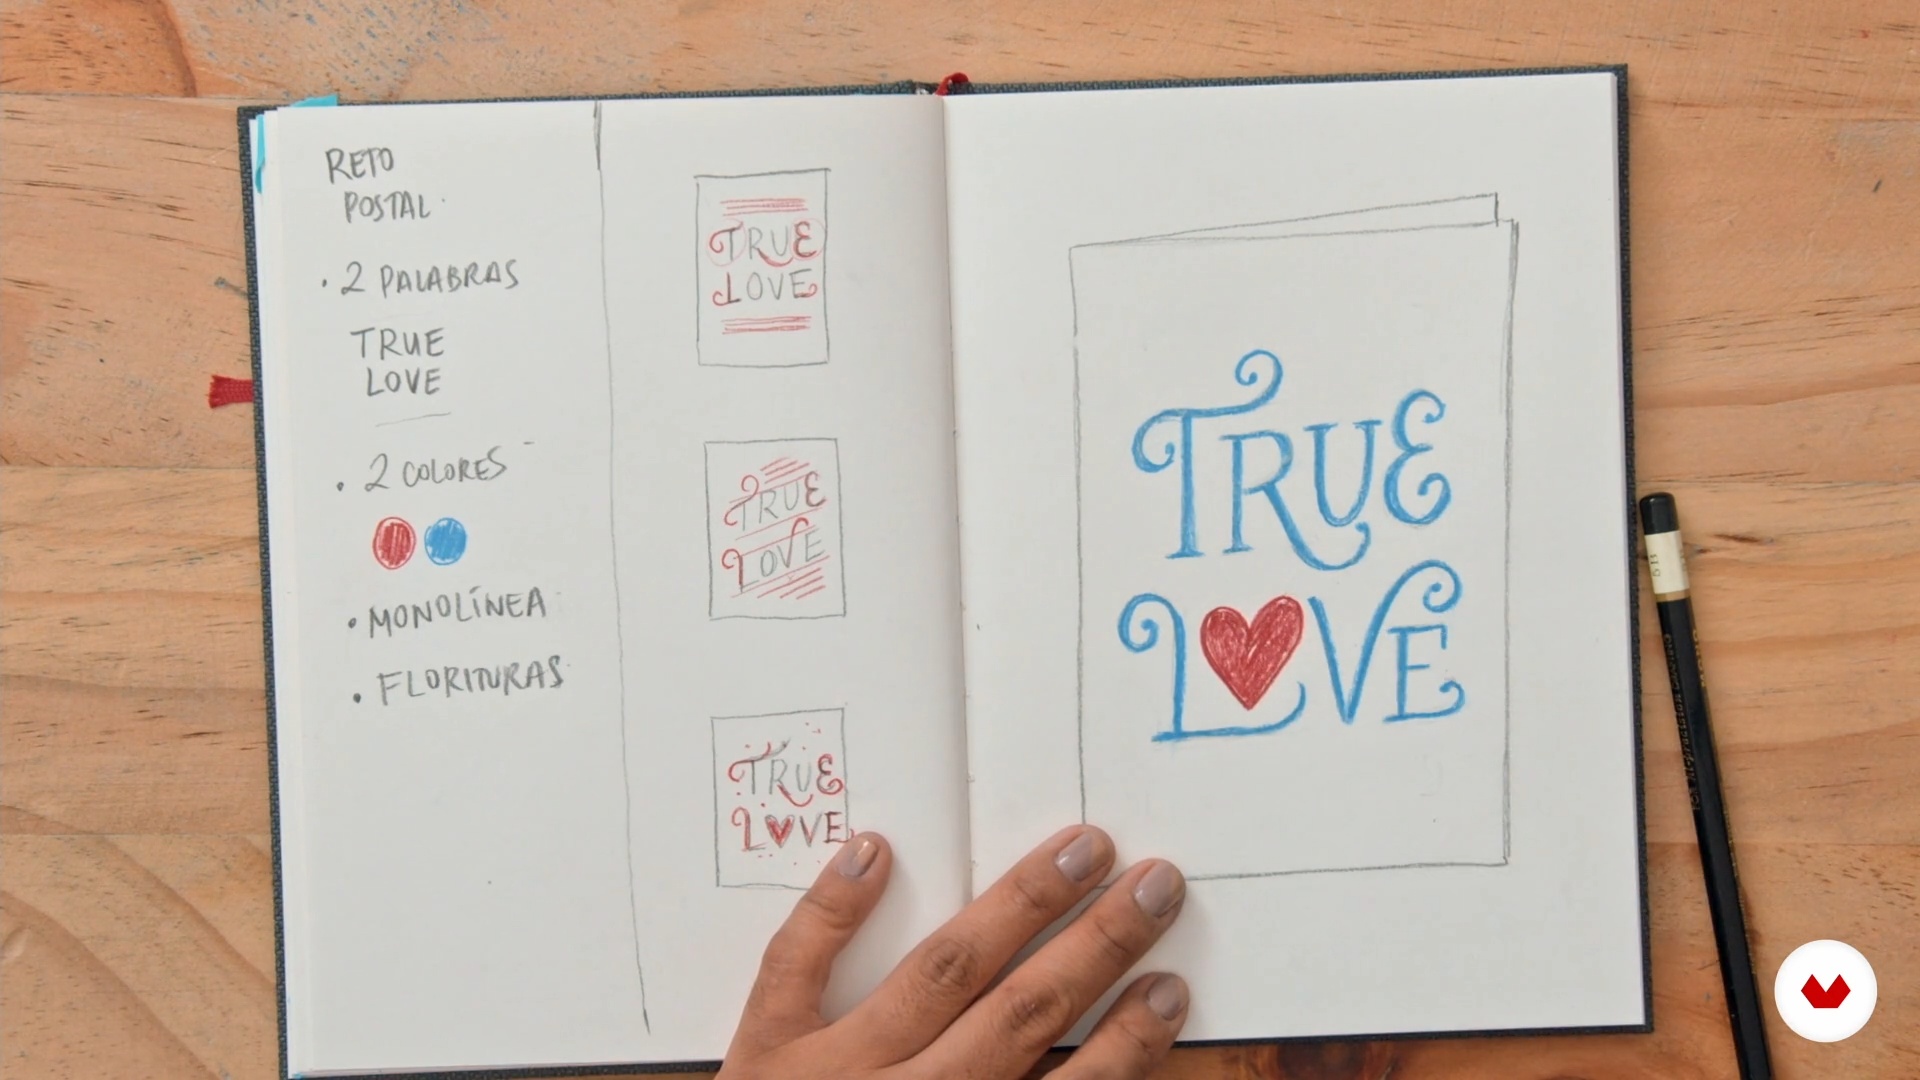 RETO
POSTAL
• 2 PALABRAS
TRUE
LOVE
• 2 COLORES
• MONOLÍNEA
• FLORITURAS
TRUE
LOVE
TRUE
LOVE
TRUE
L♥VE
TRUE
L♥VE